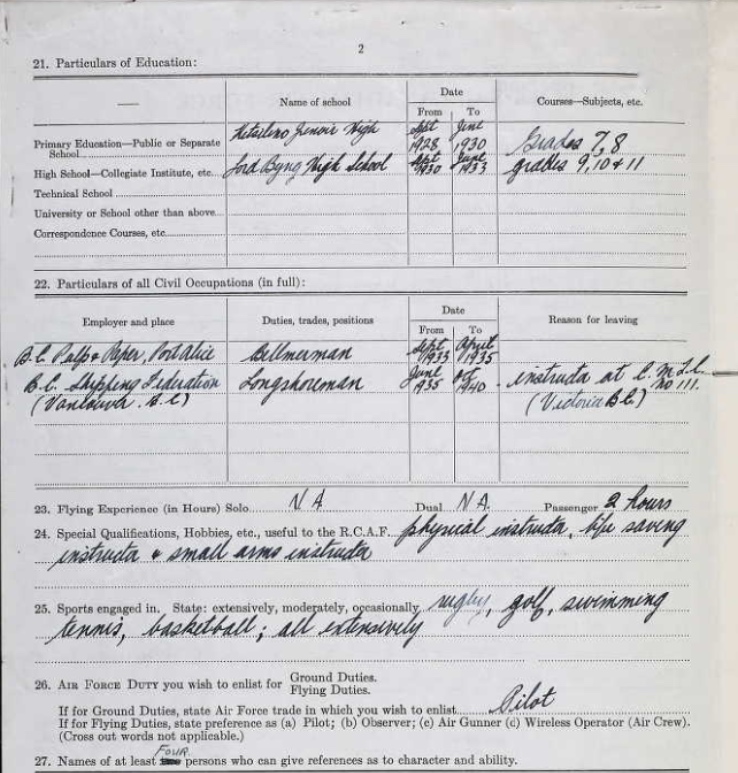 2
21. Particulars of Education:
Name of school
Date
From To
Courses—Subjects, etc.
Primary Education—Public or Separate School
Kitsilano Junior High
Sept 1928
June 1930
Grades 7, 8
High School—Collegiate Institute, etc.
Lord Byng High School
Sept 1930
June 1933
grades 9, 10 & 11
Technical School
University or School other than above
Correspondence Courses, etc.
22. Particulars of all Civil Occupations (in full):
Employer and place
Duties, trades, positions
Date
From To
Reason for leaving
B.C. Pulp & Paper, Port Alice
Sept 1933
April 1935
B.C. Shipping Federation
(Vancouver. B.C)
Longshoreman
June 1935
Oct 1940
instructor at C.M.T.C. No 111.
(Victoria B.C.)
23. Flying Experience (in Hours) Solo N.A Dual N.A. Passenger 2 hours
24. Special Qualifications, Hobbies, etc., useful to the R.C.A.F. physical instructor, life saving
instructor & small arms instructor
25. Sports engaged in. State: extensively, moderately, occasionally rugby, golf, swimming
tennis, basketball; all extensively
26. AIR FORCE DUTY you wish to enlist for Ground Duties.
Flying Duties.
If for Ground Duties, state Air Force trade in which you wish to enlist Pilot
If for Flying Duties, state preference as (a) Pilot; (b) Observer; (c) Air Gunner (d) Wireless Operator (Air Crew).
(Cross out words not applicable.)
FOUR
27. Names of at least persons who can give references as to character and ability.